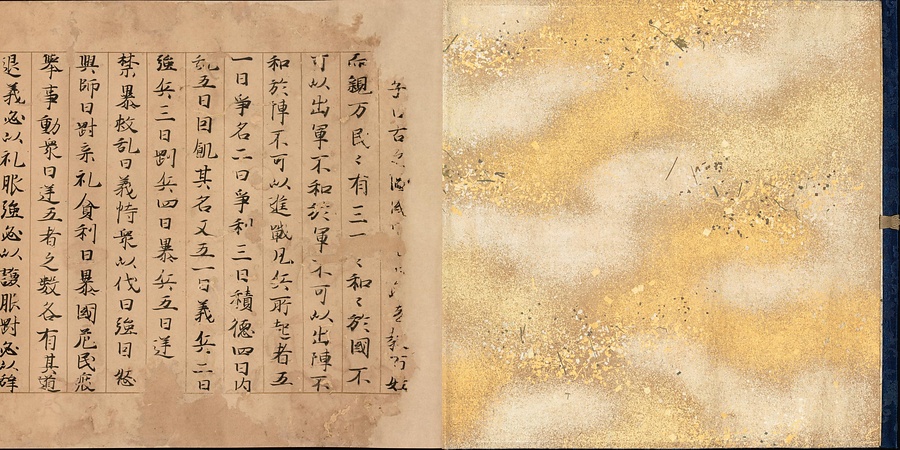 子 古之 教百姓
而親万民〻有三一 〻和〻於國不
可以出軍不和於軍不可以出陳不
和於陣不可以進戰凡兵所起者五
一曰爭名二曰爭利三曰積德四曰内
乱五曰因飢其名又五一曰義兵二曰
強兵三曰剛兵四曰暴兵五曰逆
禁暴救乱曰義恃衆以伐曰強因怒
興師曰剛棄礼貪利曰暴國危民疲
舉事動衆曰逆五者之數各有其道
退義必以礼服強必以謙服剛必以辞